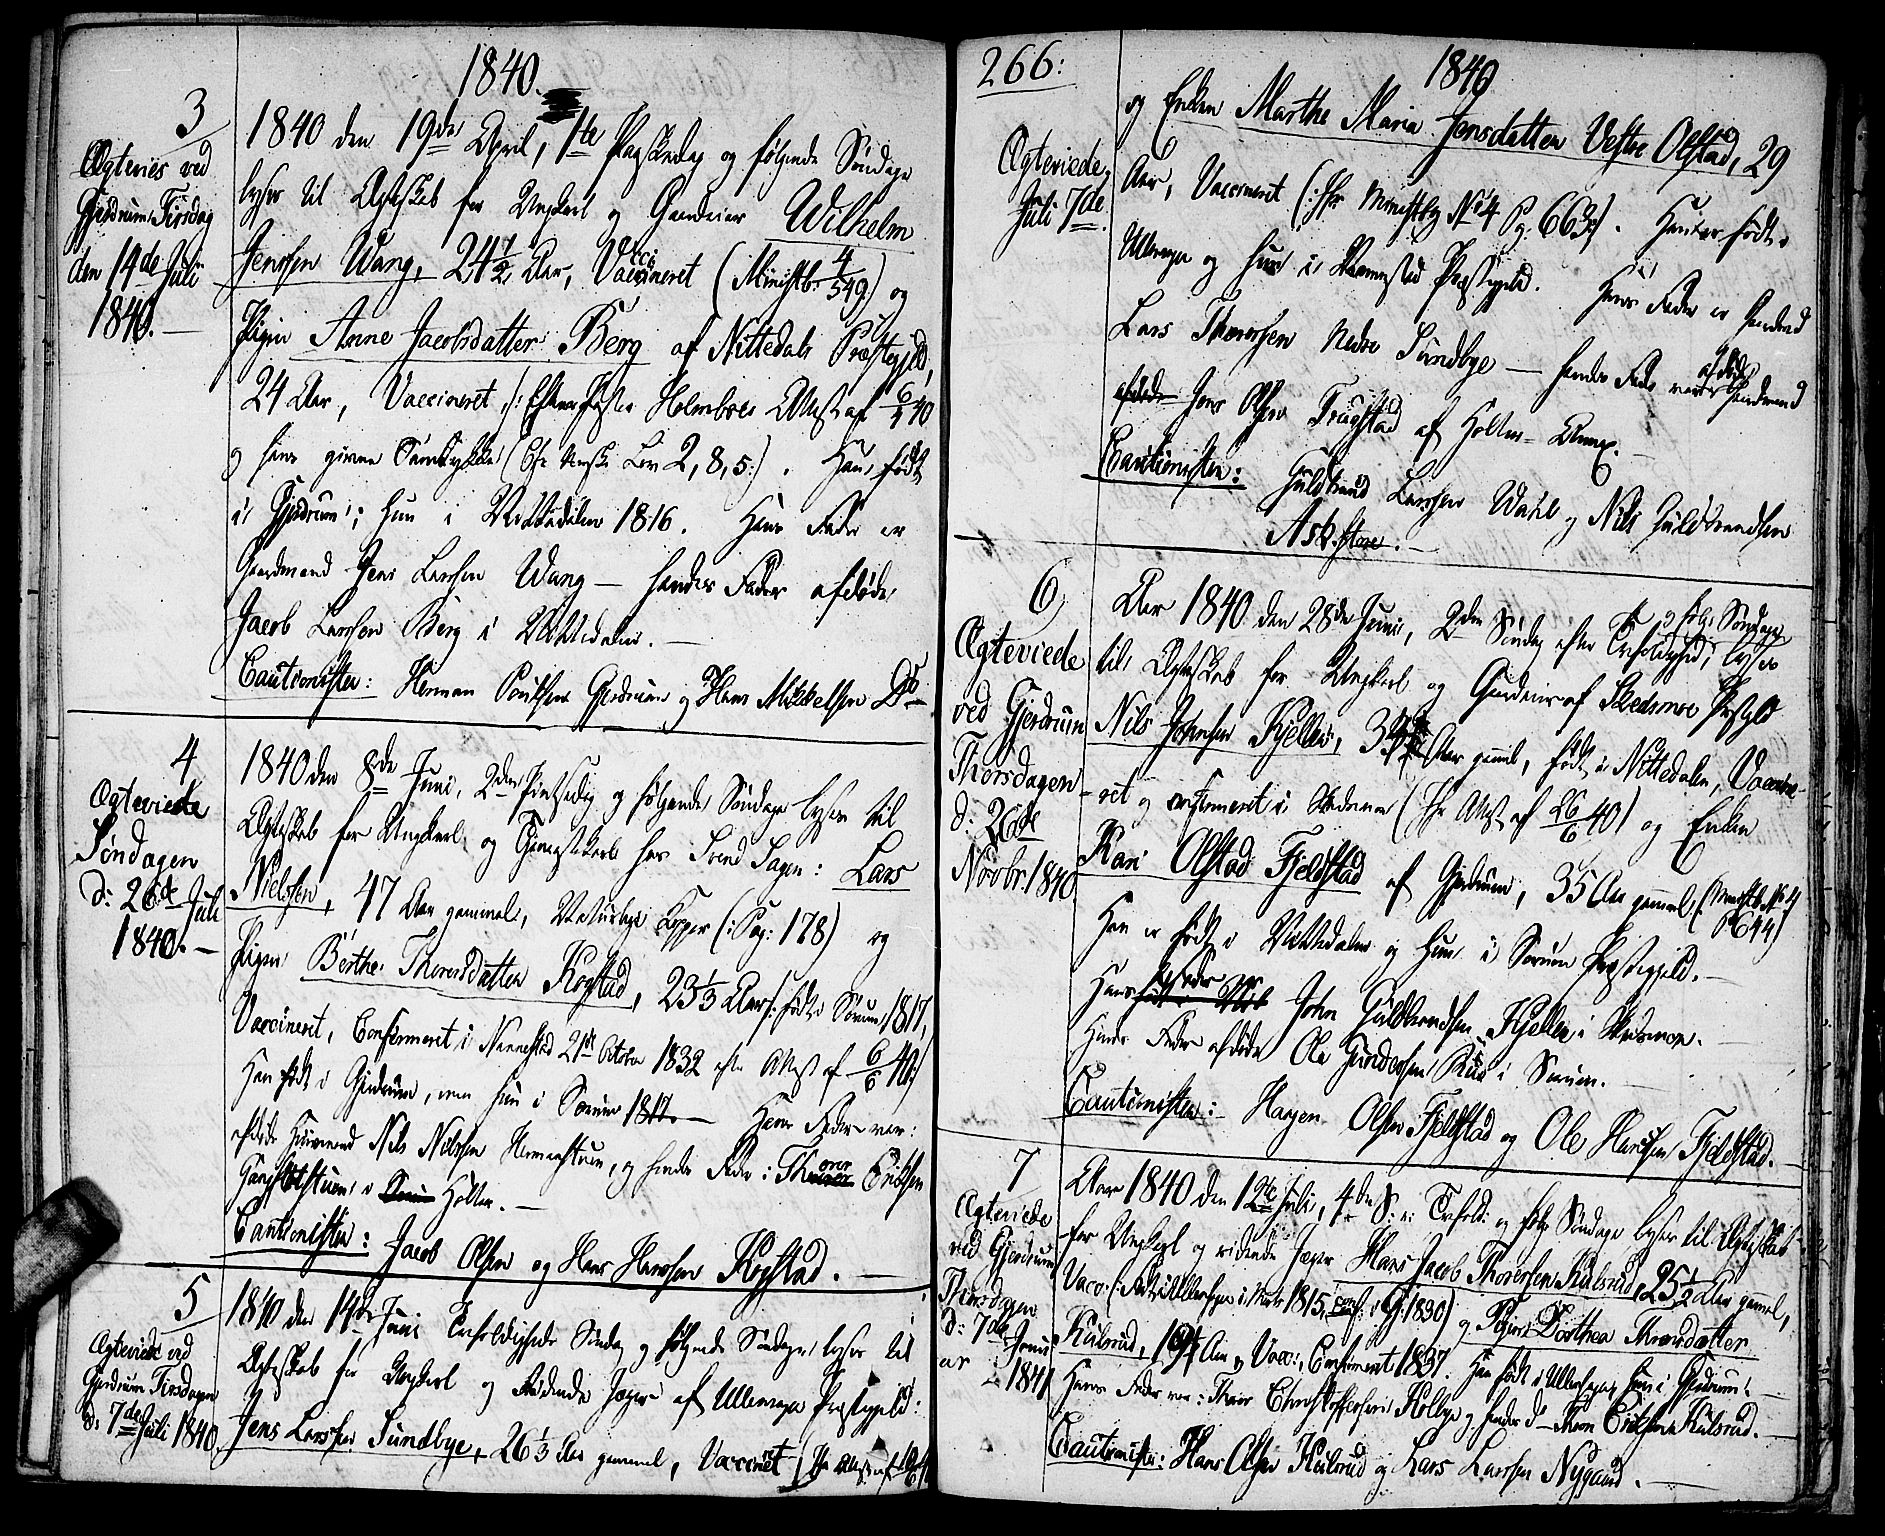 1840.
3
Ægtevies ved
Gjerdrum Tirsdag
den 14de Juli
1840.
1840 den 19de April, 1ste Paaskedag og følgende Søndage
lyses til Ægteskab for Ungkarl og Gaardeier Wilhelm
Jenssen Wang, 24½ Aar, Vaccineret (Ministb: 4/549) og
Pigen Anne Jacobsdatter Berg af Nittedals Præstegjeld,
24 Aar, Vaccineret, Holmboes Attest af 6/4 40
og hans givne Samtykke (Cfr Norske Lov 2, 8, 5:). Han født
i Gjerdrum; hun i Nittedalen 1816. Hans Fader er
Gaardmand Jens Larssen Wang — hendes Fader afdøde
Jacob Larssen Berg i Nittedalen. —
Cautionister: Herman Poulsen Gjerdrum og Hans Mikkelsen Do —
4
Ægteviede
Søndagen
d: 26de Juli
1840. —
1840 den 8de Juni, 2den Pintsedag og følgende Søndage lyses til
Ægteskab for Ungkarl og Tjenestekarl hos Svend Sagen: Lars
Nielssen, 47 Aar gammel, Naturlige Kopper (: Pag: 178) og
Pigen Berthe Thoresdatter Kogstad, 23⅓ Aar (: født i Sørum 1817,
Vaccineret, Confirmeret i Nannestad 21de October 1832 efter Attest af 6/6 40:)
Han født i Gjerdrum, men hun i Sørum 1817. — Hans Fader var:
afdøde Huusmand Nils Nielssen Hermanstuen, og hendes Fader: Thover Eriksen
i Holter. —
Cautionister: Jacob Olsen og Hans Hanssen Kogstad. —
5
Ægteviede ved
Gjerdrum Tirsdagen
d: 7de Juli 1840.
1840 den 14de Juni Trefoldigheds Søndag og følgende Søndage lyses til
Ægteskab for Ungkarl og Ridende Jæger af Ullensager Præstegjeld:
Jens Larssen Sundbye, 26⅓ Aar gammel, Vaccineret
266:
1840
Ægteviede,
Juli 7de.
og Enken Marthe Maria Jensdatter Vestre Olstad, 29
Aar, Vaccineret (: Cfr Ministbg No 4 Pg. 663:). Han er født i
Ullensager og hun i Nannestad Præstegjeld. Hans Fader er Gaardmand
Lars Thorersen Nedre Sundbye — hendes Fader var afdøde Gaardmand
Jens Olsen Trugstad af Holter-Annex. —
Cautionister: Guldbrand Larssen Wahl og Nils Guldbrandsen
Ask. store. —
6
Ægteviede
ved Gjerdrum
Thorsdagen
d: 26de
Novbr. 1840.
Aar 1840 den 28de Juni, 2den Søndag efter Trefoldighed, og følg. Søndage lyses
til Ægteskab for Ungkarl og Gaardeier af Skedsmoe Præstgjld
Nils Johnsen Kjeller, Aar gaml, født i Nittedalen, Vaccine-
ret og confirmeret i Skedsmoe (Cfr Attest af 26/6 40) og Enken
Kari Olstad Fjeldstad af Gjerdrum, 35 Aar gammel, (: Ministb. No 4
P. 644)
Han er født i Nittedalen og Hun i Sørum Præstegjeld. —
Hans Fader er John Guldbrandsen Kjeller i Skedsmoe. —
Hendes Fader afdøde Ole Gundersen Ruu i Sørum. —
Cautionister: Hagen Olsen Fjeldstad og Ole Hanssen Fjeldstad. —
7
Ægteviede
ved Gjerdrum
Thorsdagen
d: 7de Janu-
ar 1841
Aar 1840 den 12te Juli, 4de S: e: Trefold: og følg Søndage lyses til Ægteskab
for Ungkarl og ridende Jæger Hans Jacob Thorersen Kulsrud, 25½ Aar gammel,
Vacc: (: Født i Ullensager i Marts 1815, Conf: i Gj: 1830) og Pigen Dorthea Thronsdatter
Kulsrud, Aar og Vacc:, Confirmeret 1837. Han født i Ullensager, hun i Gjerdrum. —
Hans Fader var: Thorer Christoffersen Holbye og hendes do — Thron Eriksen Kulsrud. —
Cautionister: Hans Olsen Kulsrud og Lars Larssen Nygaard. —